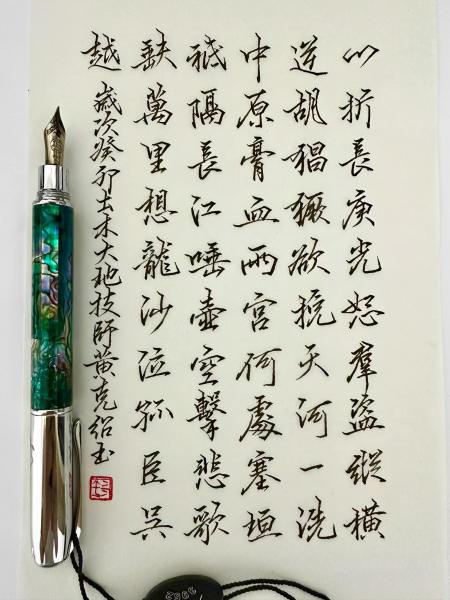 心折長庚光怒羣盜縱橫
逆胡猖獗欲挽天河一洗
中原膏血兩宮何處塞垣
祗隔長江唾壺空擊悲歌
缺萬里想龍沙泣孤臣吳
越
歲次癸卯土木大地技師黃克紹玉